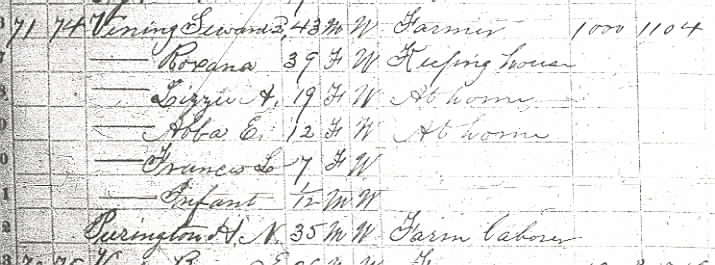 71 74 Vining Seward 2, 43 M W Farmer 1000 1104
— Roxana 39 F W Keeping house
— Lizzie A. 19 F W At home
— Abba E. 12 F W At home
— Frances L 7 F W
— Infant 1/12 M W
Purington A. N. 35 M W Farm laborer